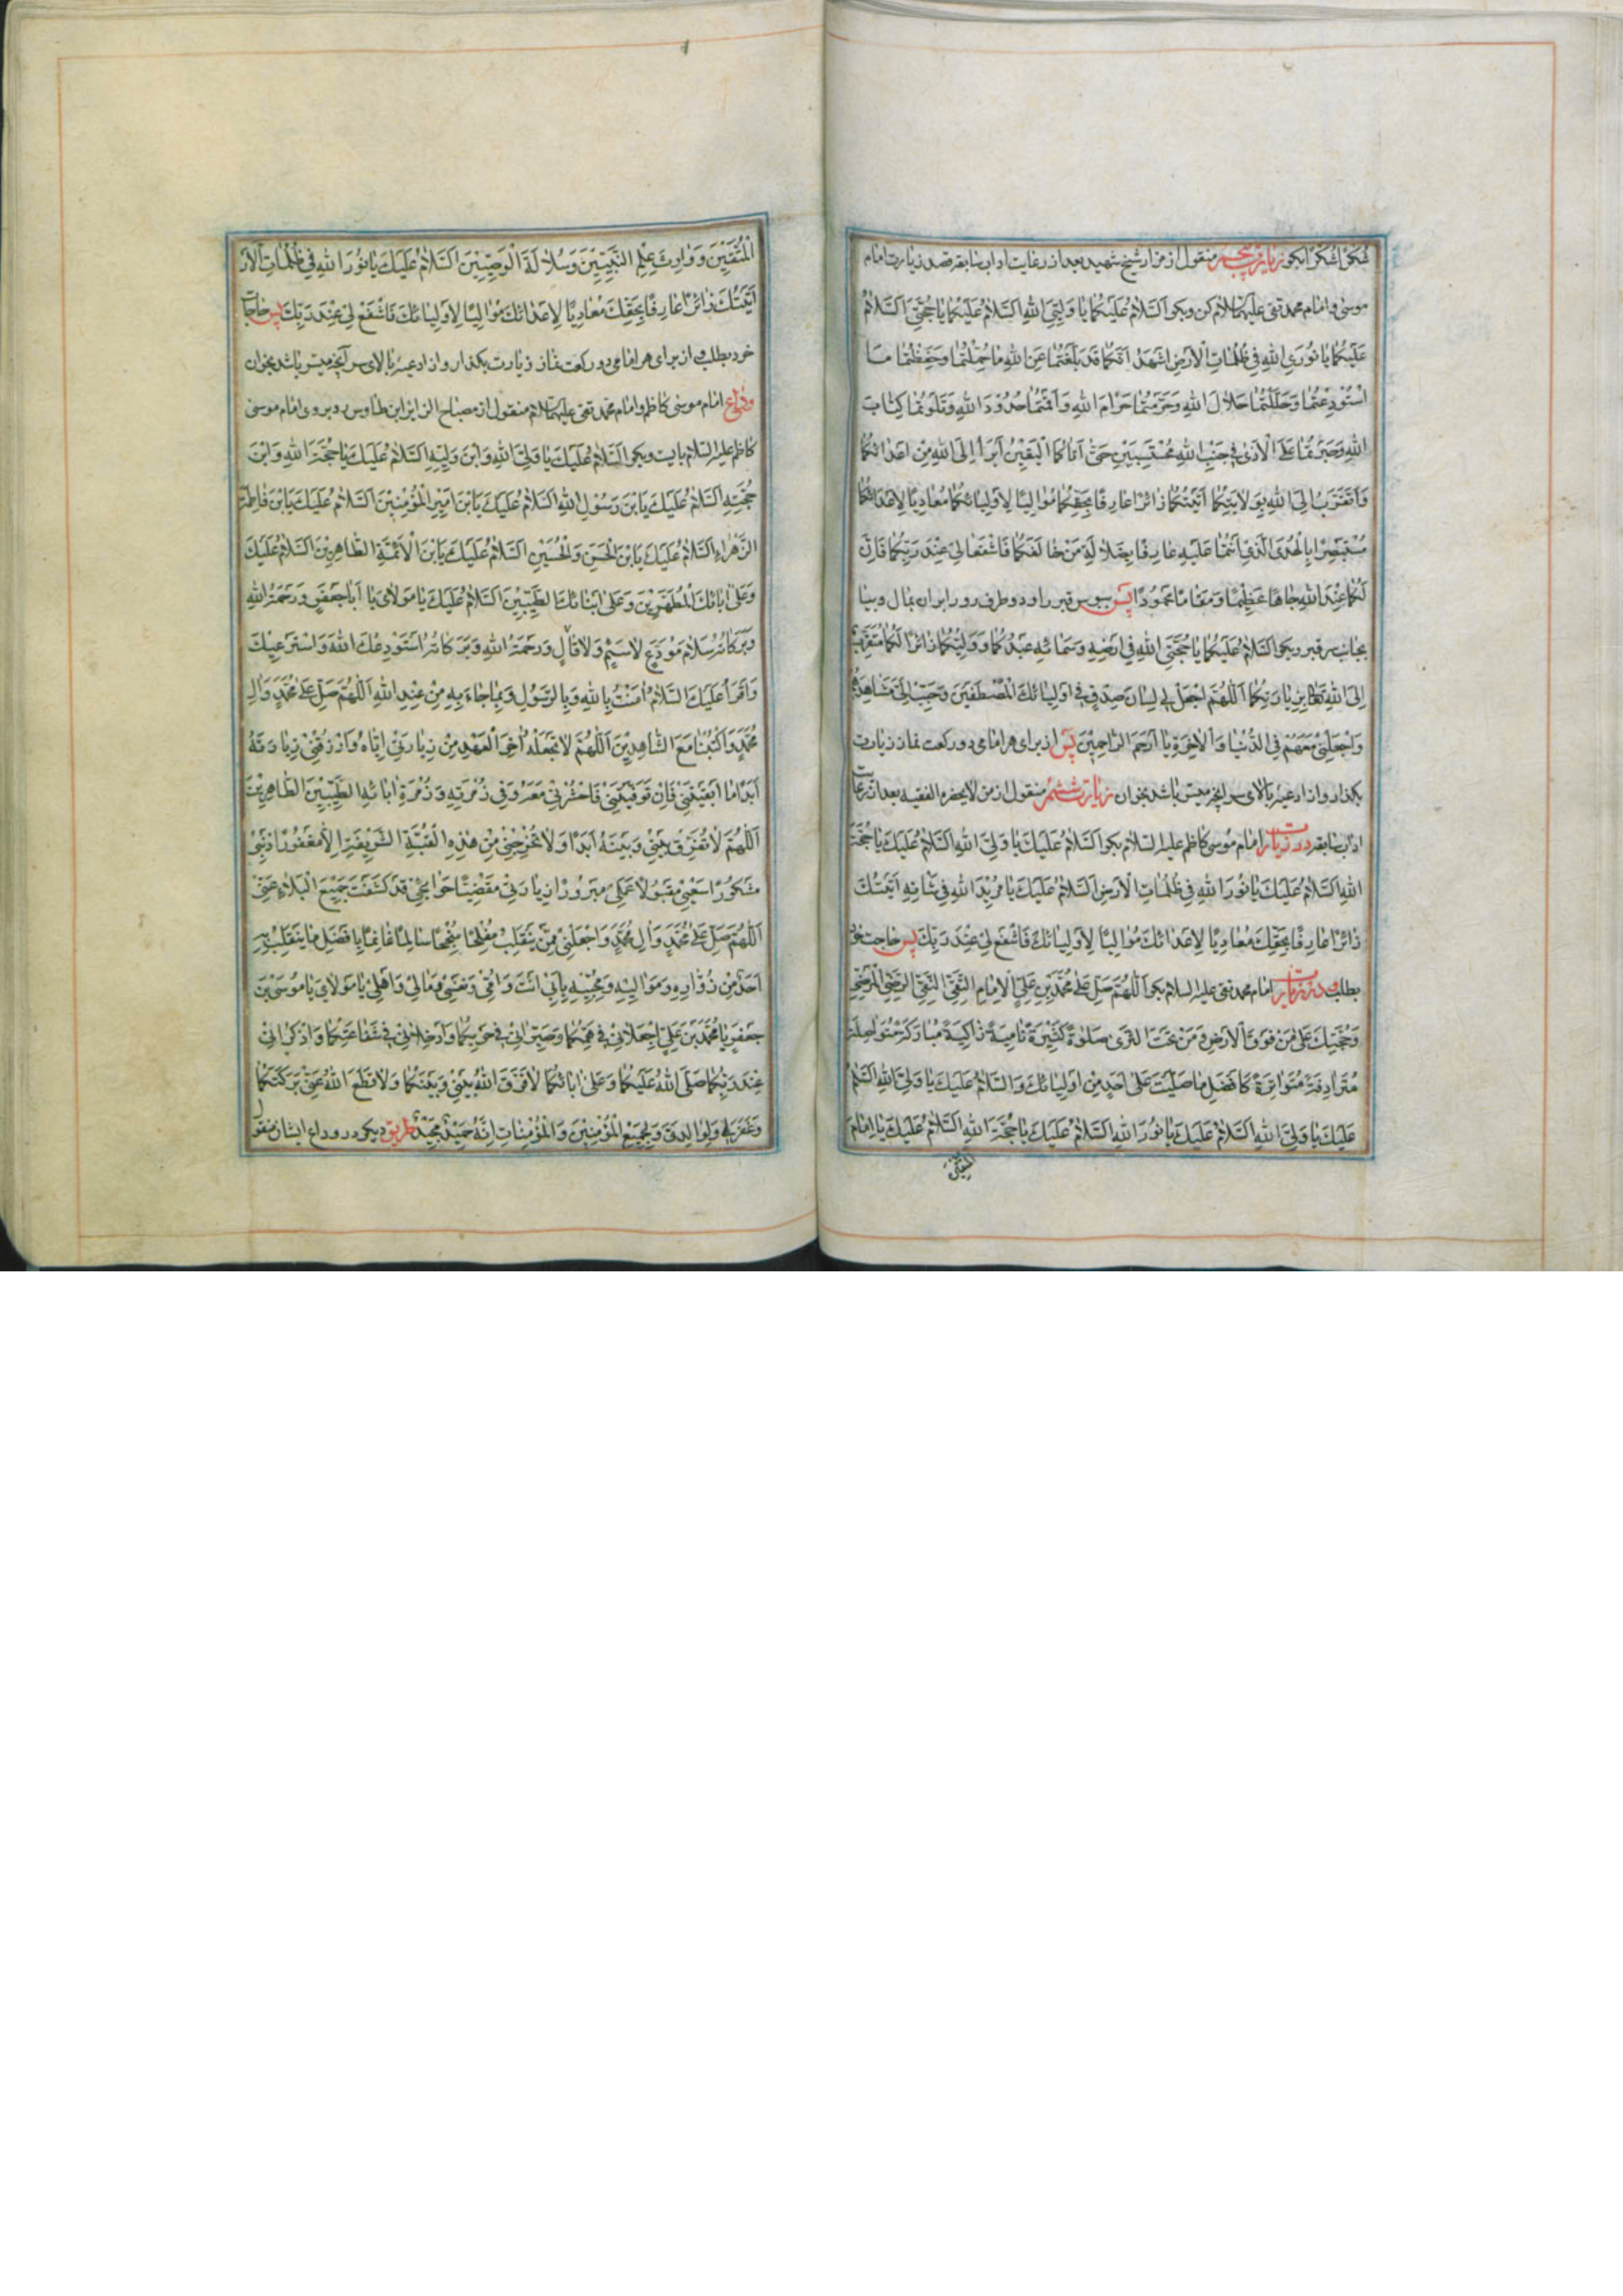 شُكْرًا شُكْرًا بگو زیارت پنجم منقول از مزار شیخ شهید بعد از رعایت اداب سابقه قصد زیارت امام
موسی و امام محمد تقی علیهما السلام کن و بگو اَلسَّلامُ عَلَيْكُما يا وَلِيَّيِ اللهِ اَلسَّلامُ عَلَيْكُما يا حُجَّتَيِ اَلسَّلامُ
عَلَيْكُما يا نُورَيِ اللهِ فِي ظُلُماتِ الْاَرْضِ اَشْهَدُ اَنَّكُما قَدْ بَلَّغْتُما عَنِ اللهِ ما حُمِّلْتُما وَحَفِظْتُما مَا
اسْتُوْدِعْتُما وَحَلَّلْتُما حَلالَ اللهِ وَحَرَّمْتُما حَرامَ اللهِ وَاَقَمْتُما حُدُوْدَ اللهِ وَتَلَوْتُما كِتابَ
اللهِ وَصَبَرْتُما عَلَى الْاَذى فِي جَنْبِ اللهِ مُحْتَسِبَيْنِ حَتّى اَتاكُمَا الْيَقِيْنُ اَبْرَأُ اِلَى اللهِ مِنْ اَعْدائِكُما
وَاَتَقَرَّبُ اِلَى اللهِ بِوِلايَتِكُما اَتَيْتُكُما زائِرًا عارِفًا بِحَقِّكُما مُوالِيًا لِاَوْلِيائِكُما مُعادِيًا لِاَعْدائِكُما
مُسْتَبْصِرًا بِالْهُدَى الَّذِي اَنْتُما عَلَيْهِ عارِفًا بِضَلالَةِ مَنْ خالَفَكُما فَاشْفَعا لِي عِنْدَ رَبِّكُما فَاِنَّ
لَكُما عِنْدَ اللهِ جاهًا عَظِيْمًا وَمَقامًا مَحْمُوْدًا پس ببوس قبر را و دو طرف رو را بر ان بمال و بیا
بجانب سر قبر و بگو اَلسَّلامُ عَلَيْكُما يا حُجَّتَيِ اللهِ فِي اَرْضِهِ وَسَمائِهِ عَبْدُكُما وَوَلِيُّكُما زائِرًا لَكُما مُتَقَرِّبًا
اِلَى اللهِ تَعالى بِزِيارَتِكُما اَللّهُمَّ اجْعَلْ لِي لِسانَ صِدْقٍ فِي اَوْلِيائِكَ الْمُصْطَفَيْنَ وَحَبِّبْ اِلَيَّ مَشاهِدَهُمْ
وَاجْعَلْنِي مَعَهُمْ فِي الدُّنْيا وَالْاخِرَةِ يا اَرْحَمَ الرّاحِمِيْنَ پس از برای هر امامی دو رکعت نماز زیارت
بگذار و از ادعیه بالای سر انچه میسر باشد بخوان زیارت ششم منقول از من لا یحضره الفقیه بعد از رعایت
اداب سابقه در زیارت امام موسی کاظم علیه السلام بگو اَلسَّلامُ عَلَيْكَ يا وَلِيَّ اللهِ اَلسَّلامُ عَلَيْكَ يا حُجَّةَ
اللهِ اَلسَّلامُ عَلَيْكَ يا نُوْرَ اللهِ فِي ظُلُماتِ الْاَرْضِ اَلسَّلامُ عَلَيْكَ يا مَنْ بَدَا للهِ فِي شَانِهِ اَتَيْتُكَ
زائِرًا عارِفًا بِحَقِّكَ مُعادِيًا لِاَعْدائِكَ مُوالِيًا لِاَوْلِيائِكَ فَاشْفَعْ لِي عِنْدَ رَبِّكَ پس حاجت خود
بطلب و در زیارت امام محمد تقی علیه السلام بگو اَللّهُمَّ صَلِّ عَلى مُحَمَّدِ بْنِ عَلِيٍّ الْاِمامِ التَّقِيِّ النَّقِيِّ الرَّضِيِّ الْمَرْضِيِّ
وَحُجَّتِكَ عَلى مَنْ فَوْقَ الْاَرْضِ وَمَنْ تَحْتَ الثَّرى صَلوةً كَثِيْرَةً نامِيَةً زاكِيَةً مُبارَكَةً مُتَواصِلَةً
مُتَرادِفَةً مُتَواتِرَةً كَاَفْضَلِ ما صَلَّيْتَ عَلى اَحَدٍ مِنْ اَوْلِيائِكَ وَالسَّلامُ عَلَيْكَ يا وَلِيَّ اللهِ اَلسَّلامُ
عَلَيْكَ يا وَلِيَّ اللهِ اَلسَّلامُ عَلَيْكَ يا نُوْرَ اللهِ اَلسَّلامُ عَلَيْكَ يا حُجَّةَ اللهِ اَلسَّلامُ عَلَيْكَ يا اِمامَ
المتقین
الْمُتَّقِيْنَ وَوارِثَ عِلْمِ النَّبِيِّيْنَ وَسُلالَةَ الْوَصِيِّيْنَ اَلسَّلامُ عَلَيْكَ يا نُوْرَ اللهِ فِي ظُلُماتِ الْاَرْضِ
اَتَيْتُكَ زائِرًا عارِفًا بِحَقِّكَ مُعادِيًا لِاَعْدائِكَ مُوالِيًا لِاَوْلِيائِكَ فَاشْفَعْ لِي عِنْدَ رَبِّكَ پس حاجات
خود بطلب و از برای هر امامی دو رکعت نماز زیارت بگذار و از ادعیه بالای سر آنچه میسر باشد بخوان
وداع امام موسی کاظم و امام محمد تقی علیهما السلام منقول از مصباح الزایر ابن طاوس رو بروی امام موسی
کاظم علیه السلام بایست و بگو اَلسَّلامُ عَلَيْكَ يا وَلِيَّ اللهِ وَابْنَ وَلِيِّهِ اَلسَّلامُ عَلَيْكَ يا حُجَّةَ اللهِ وَابْنَ
حُجَّتِهِ اَلسَّلامُ عَلَيْكَ يَا بْنَ رَسُوْلِ اللهِ اَلسَّلامُ عَلَيْكَ يَا بْنَ اَمِيْرِ الْمُؤْمِنِيْنَ اَلسَّلامُ عَلَيْكَ يَا بْنَ فاطِمَةَ
الزَّهْراءِ اَلسَّلامُ عَلَيْكَ يَا بْنَ الْحَسَنِ وَالْحُسَيْنِ اَلسَّلامُ عَلَيْكَ يَا بْنَ الْاَئِمَّةِ الطّاهِرِيْنَ اَلسَّلامُ عَلَيْكَ
وَعَلى ابائِكَ الْمُطَهَّرِيْنَ وَعَلى اَبْنائِكَ الطَّيِّبِيْنَ اَلسَّلامُ عَلَيْكَ يا مَوْلايَ يا اَبا جَعْفَرٍ وَرَحْمَةُ اللهِ
وَبَرَكاتُهُ سَلامَ مُوَدِّعٍ لا سَئِمٍ وَلا قالٍ وَرَحْمَةُ اللهِ وَبَرَكاتُهُ اَسْتَوْدِعُكَ اللهَ وَاَسْتَرْعِيْكَ
وَاَقْرَاُ عَلَيْكَ السَّلامُ امَنْتُ بِاللهِ وَبِالرَّسُوْلِ وَبِما جاءَ بِهِ مِنْ عِنْدِ اللهِ اَللّهُمَّ صَلِّ عَلى مُحَمَّدٍ وَالِ
مُحَمَّدٍ وَاكْتُبْنا مَعَ الشّاهِدِيْنَ اَللّهُمَّ لا تَجْعَلْهُ اخِرَ الْعَهْدِ مِنْ زِيارَتِي اِيّاهُ وَارْزُقْنِي زِيارَتَهُ
اَبَدًا ما اَبْقَيْتَنِي فَاِنْ تَوَفَّيْتَنِي فَاحْشُرْنِي مَعَهُ وَفِي زُمْرَتِهِ وَزُمْرَةِ ابائِهِ الطَّيِّبِيْنَ الطّاهِرِيْنَ
اَللّهُمَّ لا تُفَرِّقْ بَيْنِي وَبَيْنَهُ اَبَدًا وَلا تُخْرِجْنِي مِنْ هذِهِ الْقُبَّةِ الشَّرِيْفَةِ اِلّا مَغْفُوْرًا ذَنْبِي
مَشْكُوْرًا سَعْيِي مَقْبُوْلًا عَمَلِي مَبْرُوْرًا زِيارَتِي مَقْضِيًّا حَوائِجِي قَدْ كَشَفْتَ جَمِيْعَ الْبَلاءِ عَنِّي
اَللّهُمَّ صَلِّ عَلى مُحَمَّدٍ وَالِ مُحَمَّدٍ وَاجْعَلْنِي مِمَّنْ يَنْقَلِبُ مُفْلِحًا مُنْجِحًا سالِمًا غانِمًا بِاَفْضَلِ ما يَنْقَلِبُ بِهِ
اَحَدٌ مِنْ زُوّارِهِ وَمَوالِيْهِ وَمُحِبِّيْهِ بِاَبِي اَنْتَ وَاُمِّي وَنَفْسِي وَمالِي وَاَهْلِي يا مَوْلايَ يا مُوْسَى بْنَ
جَعْفَرٍ يا مُحَمَّدَ بْنَ عَلِيٍّ اجْعَلانِي فِي هَمِّكُما وَصَيِّرانِي فِي حِزْبِكُما وَاَدْخِلانِي فِي شَفاعَتِكُما وَاذْكُرانِي
عِنْدَ رَبِّكُما صَلَّى اللهُ عَلَيْكُما وَعَلى ابائِكُما لا فَرَّقَ اللهُ بَيْنِي وَبَيْنَكُما وَلا قَطَعَ اللهُ عَنِّي بَرَكَتَكُما
وَغَفَرَ لِي وَلِوالِدَيَّ وَلِجَمِيْعِ الْمُؤْمِنِيْنَ وَالْمُؤْمِناتِ اِنَّهُ حَمِيْدٌ مَجِيْدٌ طریق دیگر در وداع ایشان منقول